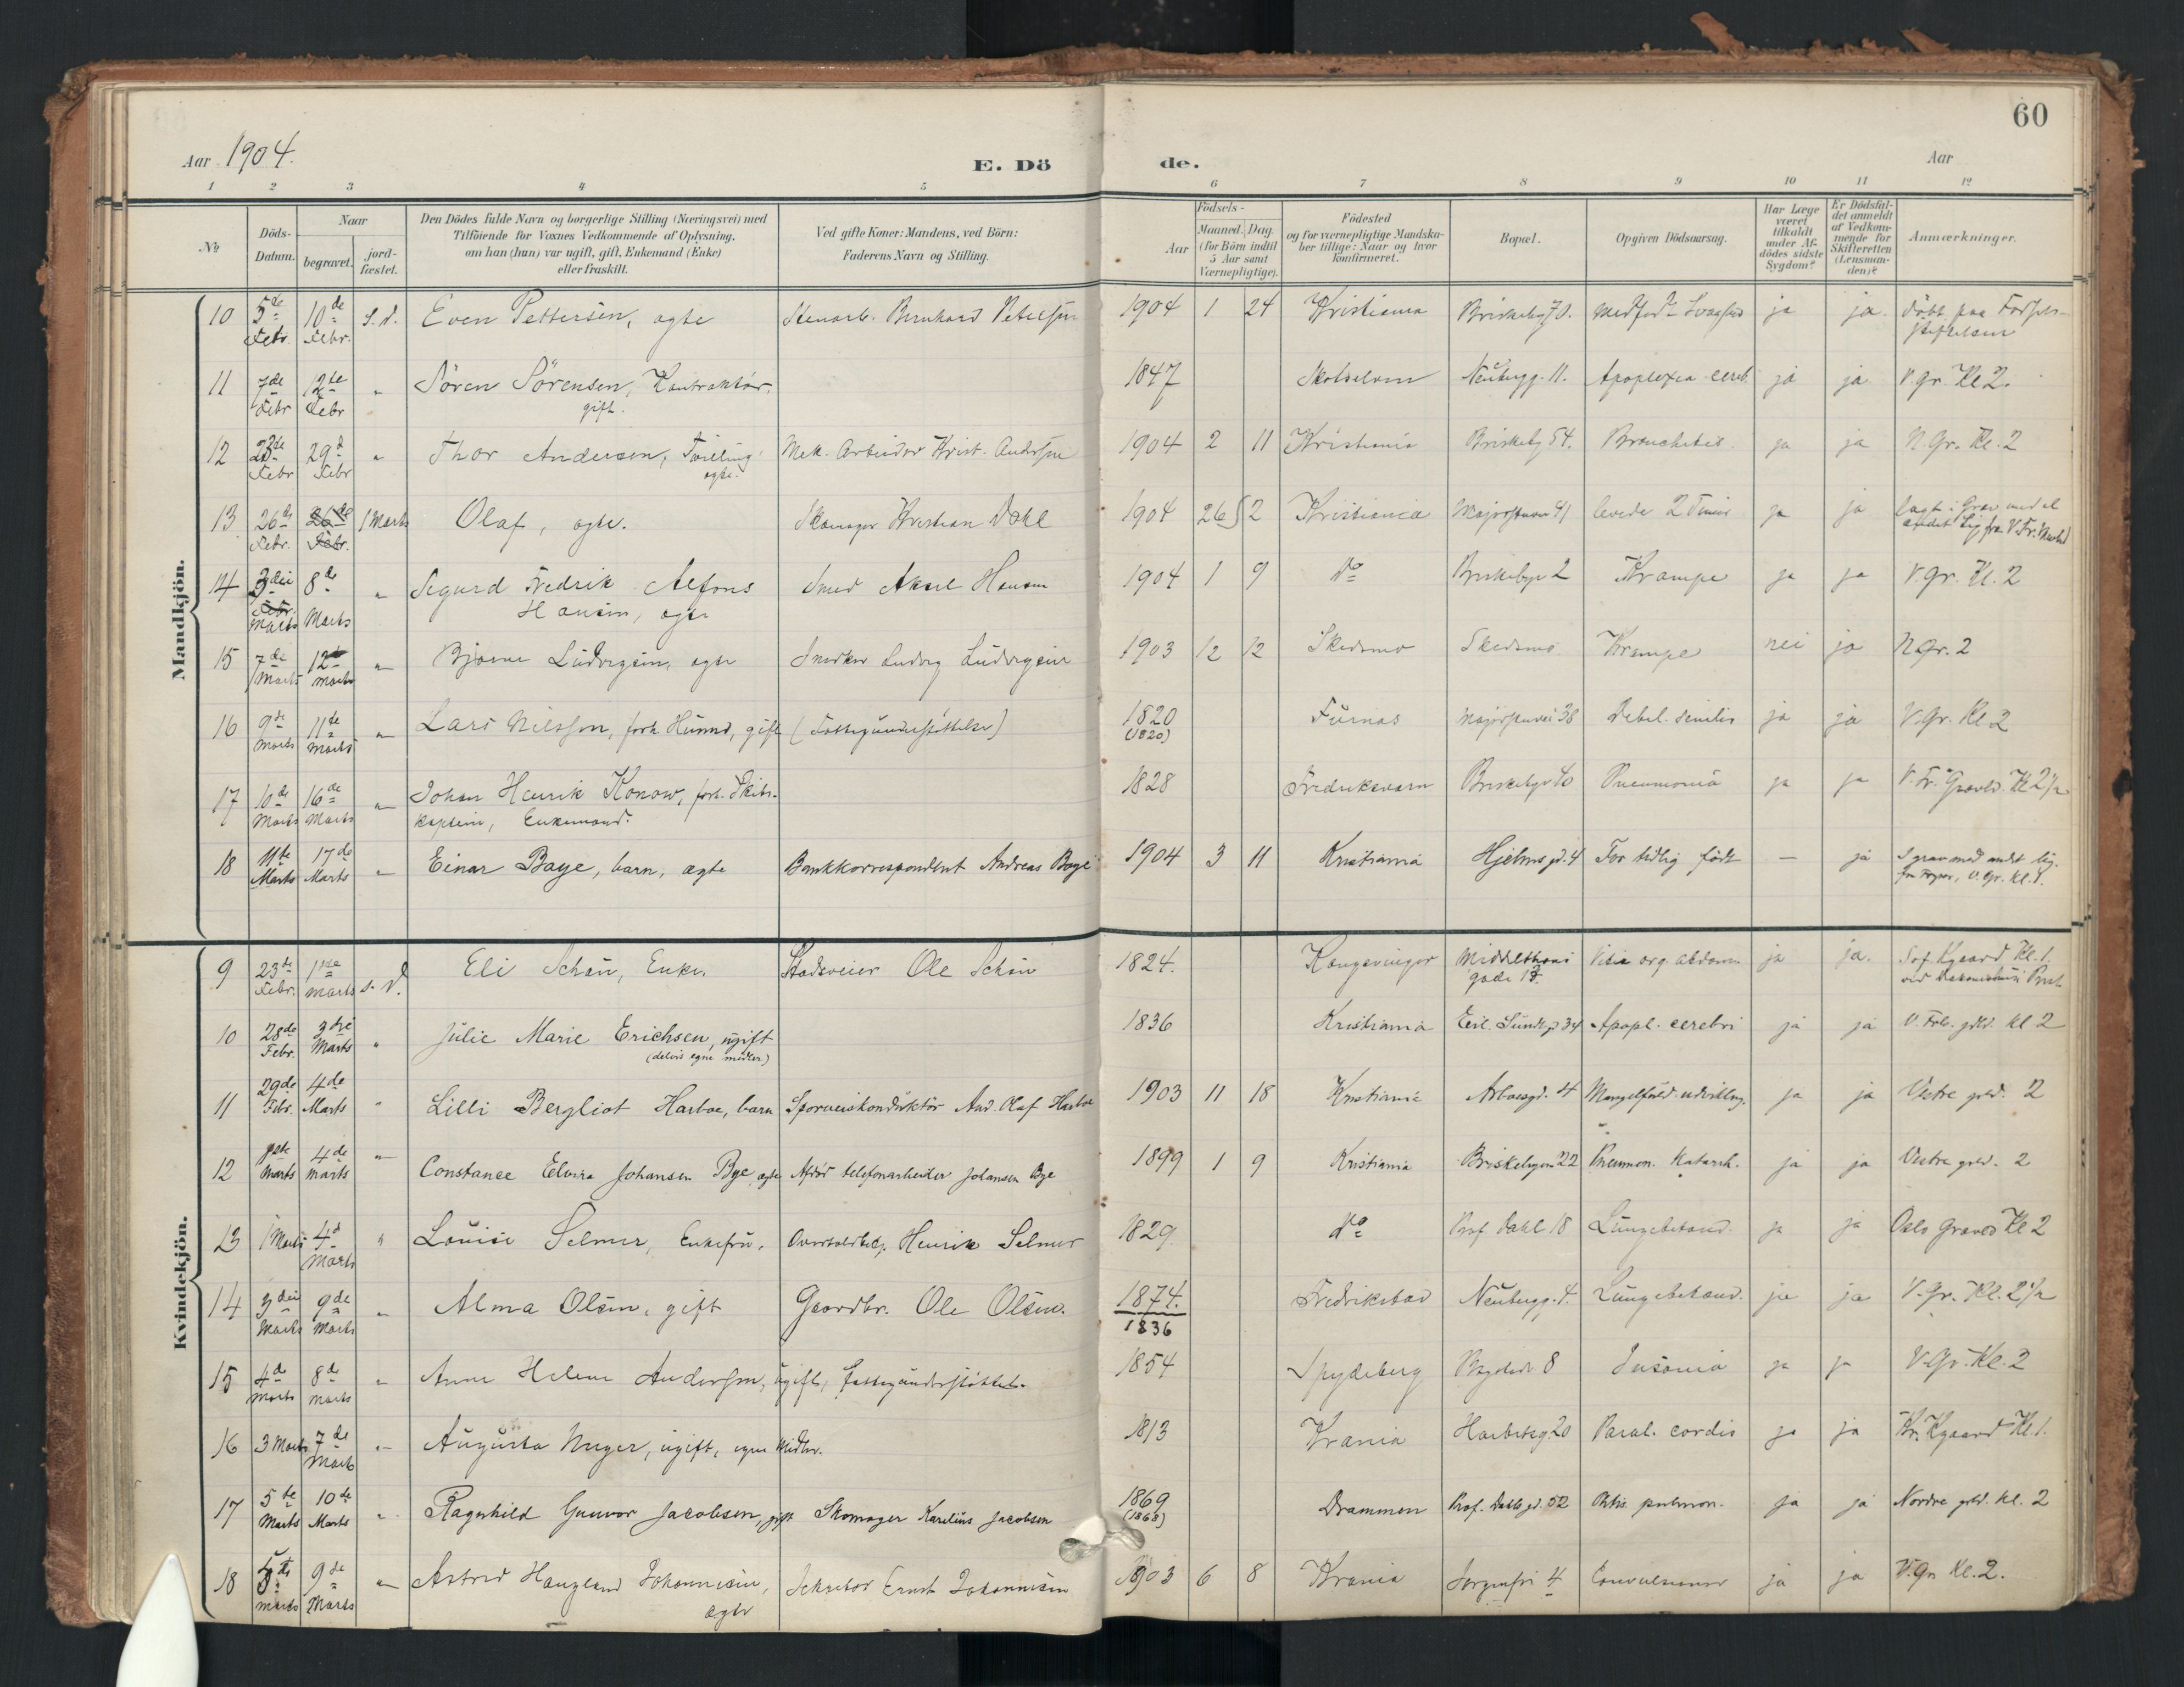 60
Aar 1904.
E. Dö de.
Aar
1 2 3 4 5 6 7 8 9 10 11 12
No
Döds-Datum.
Naar
begravet.
jord-fæstet.
Den Dödes fulde Navn og borgerlige Stilling (Næringsvei) med
Tilföiende for Voxnes Vedkommende af Oplysning,
om han (hun) var ugift, gift, Enkemand (Enke)
eller fraskilt.
Ved gifte Koner: Mandens, ved Börn:
Faderens Navn og Stilling.
Födsels-
Aar
Maaned. Dag.
(for Börn indtil
5 Aar samt
Værnepligtige).
Födested
og for værnepligtige Mandska-
ber tillige: Naar og hvor
konfirmeret.
Bopæl.
Opgiven Dödsaarsag.
Har Læge
været
tilkaldt
under Af-
dödes sidste
Sygdom?
Er Dödsfal-
det anmeldt
af Vedkom-
mende for
Skifteretten
(Lensman-
den)?
Anmærkninger.
Mandkjön.
10 5de Febr. 10de Febr. s. d. Even Pettersen, ægte Stenarb. Bernhard Pettersen 1904 1 24 Kristiania Briskebyv 70. Medfødt Svaghed ja ja. Döbt paa Fødsels-
stiftelsen
11 7de Febr 12te Febr " Sören Sörensen, Kontraktör, gift. 1847 Skotselven Neubergg. 11. Apoplexia cereb. ja ja V. gr. Kl 2.
12 Febr 29d Febr " Thor Andersen, Tvilling ægte. Mek. Arbeider Krist. Andersen 1904 2 11 Kristiania Briskeby 54. Bronchitis ja ja N. Gr. Kl. 2
13 26de Febr. 1 Marts Olaf, ægte. Skomager Kristian Dahl 1904 26/2 Kristiania Majorstuvei 41 levede 2 Timer ja ja lagt i Grav med et
andet Lig fra V. Fr.
14 3die Marts 8de Marts " Sigurd Fredrik Alfons
Hansen, ægte Smed Aksel Hansen 1904 1 9 Do Briskebyv 2 Krampe ja ja V gr. Kl. 2
15 7de Marts 12te Marts " Bjarne Ludvigsen, ægte Snedker Ludvig Ludvigsen 1903 12 12 Skedsmo Skedsmo Krampe nei ja N Gr. 2
16 9de Marts 11te Marts " Lars Nilssen, forh. Husmd, gift (Fattigunderstøttelse) 1820
(1820) Furnæs Majorstuvei 38 Debil. senilis ja ja V. Gr. Kl 2
17 10de Marts 16de Marts " Johan Henrik Konow, forh. Skibs-
kaptein, Enkemand. 1828 Fredriksværn Briskebyv 40 Pneumonia ja ja V. Fr. Gravld. Kl 2½
18 11te Marts 17de Marts " Einar Baye, barn, ægte Bankkorrespondent Andreas Baye 1904 3 11 Kristiania Hjelmsgd. 4 For tidlig født — ja I grav med andet lig.
V. Gr. Kl. 1.
Kvindekjön.
9 23de Febr. 1ste Marts s. d. Eli Schøn, Enke. Stadsveier Ole Schøn 1824. Kongsvinger Middelthuns
gade 17. Vitia org. abdom ja ja. Kgaard Kl. 1.
10 28de Febr. 3die Marts " Julie Marie Erichsen, ugift
(delvis egne midler) 1836 Kristiania Eil. Sundtsgd 34 Apopl. cerebri ja ja V. Frb. gvld. kl 2
11 29de Febr. 4de Marts " Lilli Bergliot Harboe, barn Sporveiskonduktör And. Olaf Harboe 1903 11 18 Kristiania Arboesgd. 4 Mangelfuld udvikling. ja ja Vestre gvld. 2
12 1ste Marts 4de Marts " Constance Elvira Johansen Bye, ægte Afdöd telefonarbeider Johansen Bye 1899 1 9 Kristiania Briskebyvei 22 Pneumon. Katarrh. ja ja Vestre gvld. 2
13 1 Marts 4d Marts " Louise Selmer, Enkefru, Overtoldbetj. Henrik Selmer 1829 Do Prof. Dahl 18 Lungebetænd. ja ja Oslo Gravld Kl 2
14 3die Marts 9de Marts " Alma Olsen, gift Gaardbr. Ole Olsen. 1874.
1836 Fredrikstad Neubergg. 4. Lungebetænd. ja ja V. Gr. Kl. 2½
15 4de Marts 8de Marts " Anne Helene Andersen, ugift, fattigunderstøttet. 1854 Spydeberg Bygdø 8 Insania ja ja V. Gr. Kl. 2
16 3 Marts 7de Marts " Augusta Unger, ugift, egne Midler. 1813 Krania Harbitzg. 20 Paral. cordis ja ja Kr. Kgaard Kl. 1.
17 5te Marts 10de Marts " Ragnhild Gunvor Jacobsen, gift Skomager Karelius Jacobsen 1869
(1868) Drammen Prof. Dahls gd. 52 Phtis. pulmon. ja ja Nordre gvld. kl. 2
18 Marts 9de Marts " Astrid Haugland Johannesen,
ægte Sekretær Ernst Johannesen 1903 6 8 Krania Sorgenfri 4 Convulsiones ja ja V. Gr. Kl. 2.